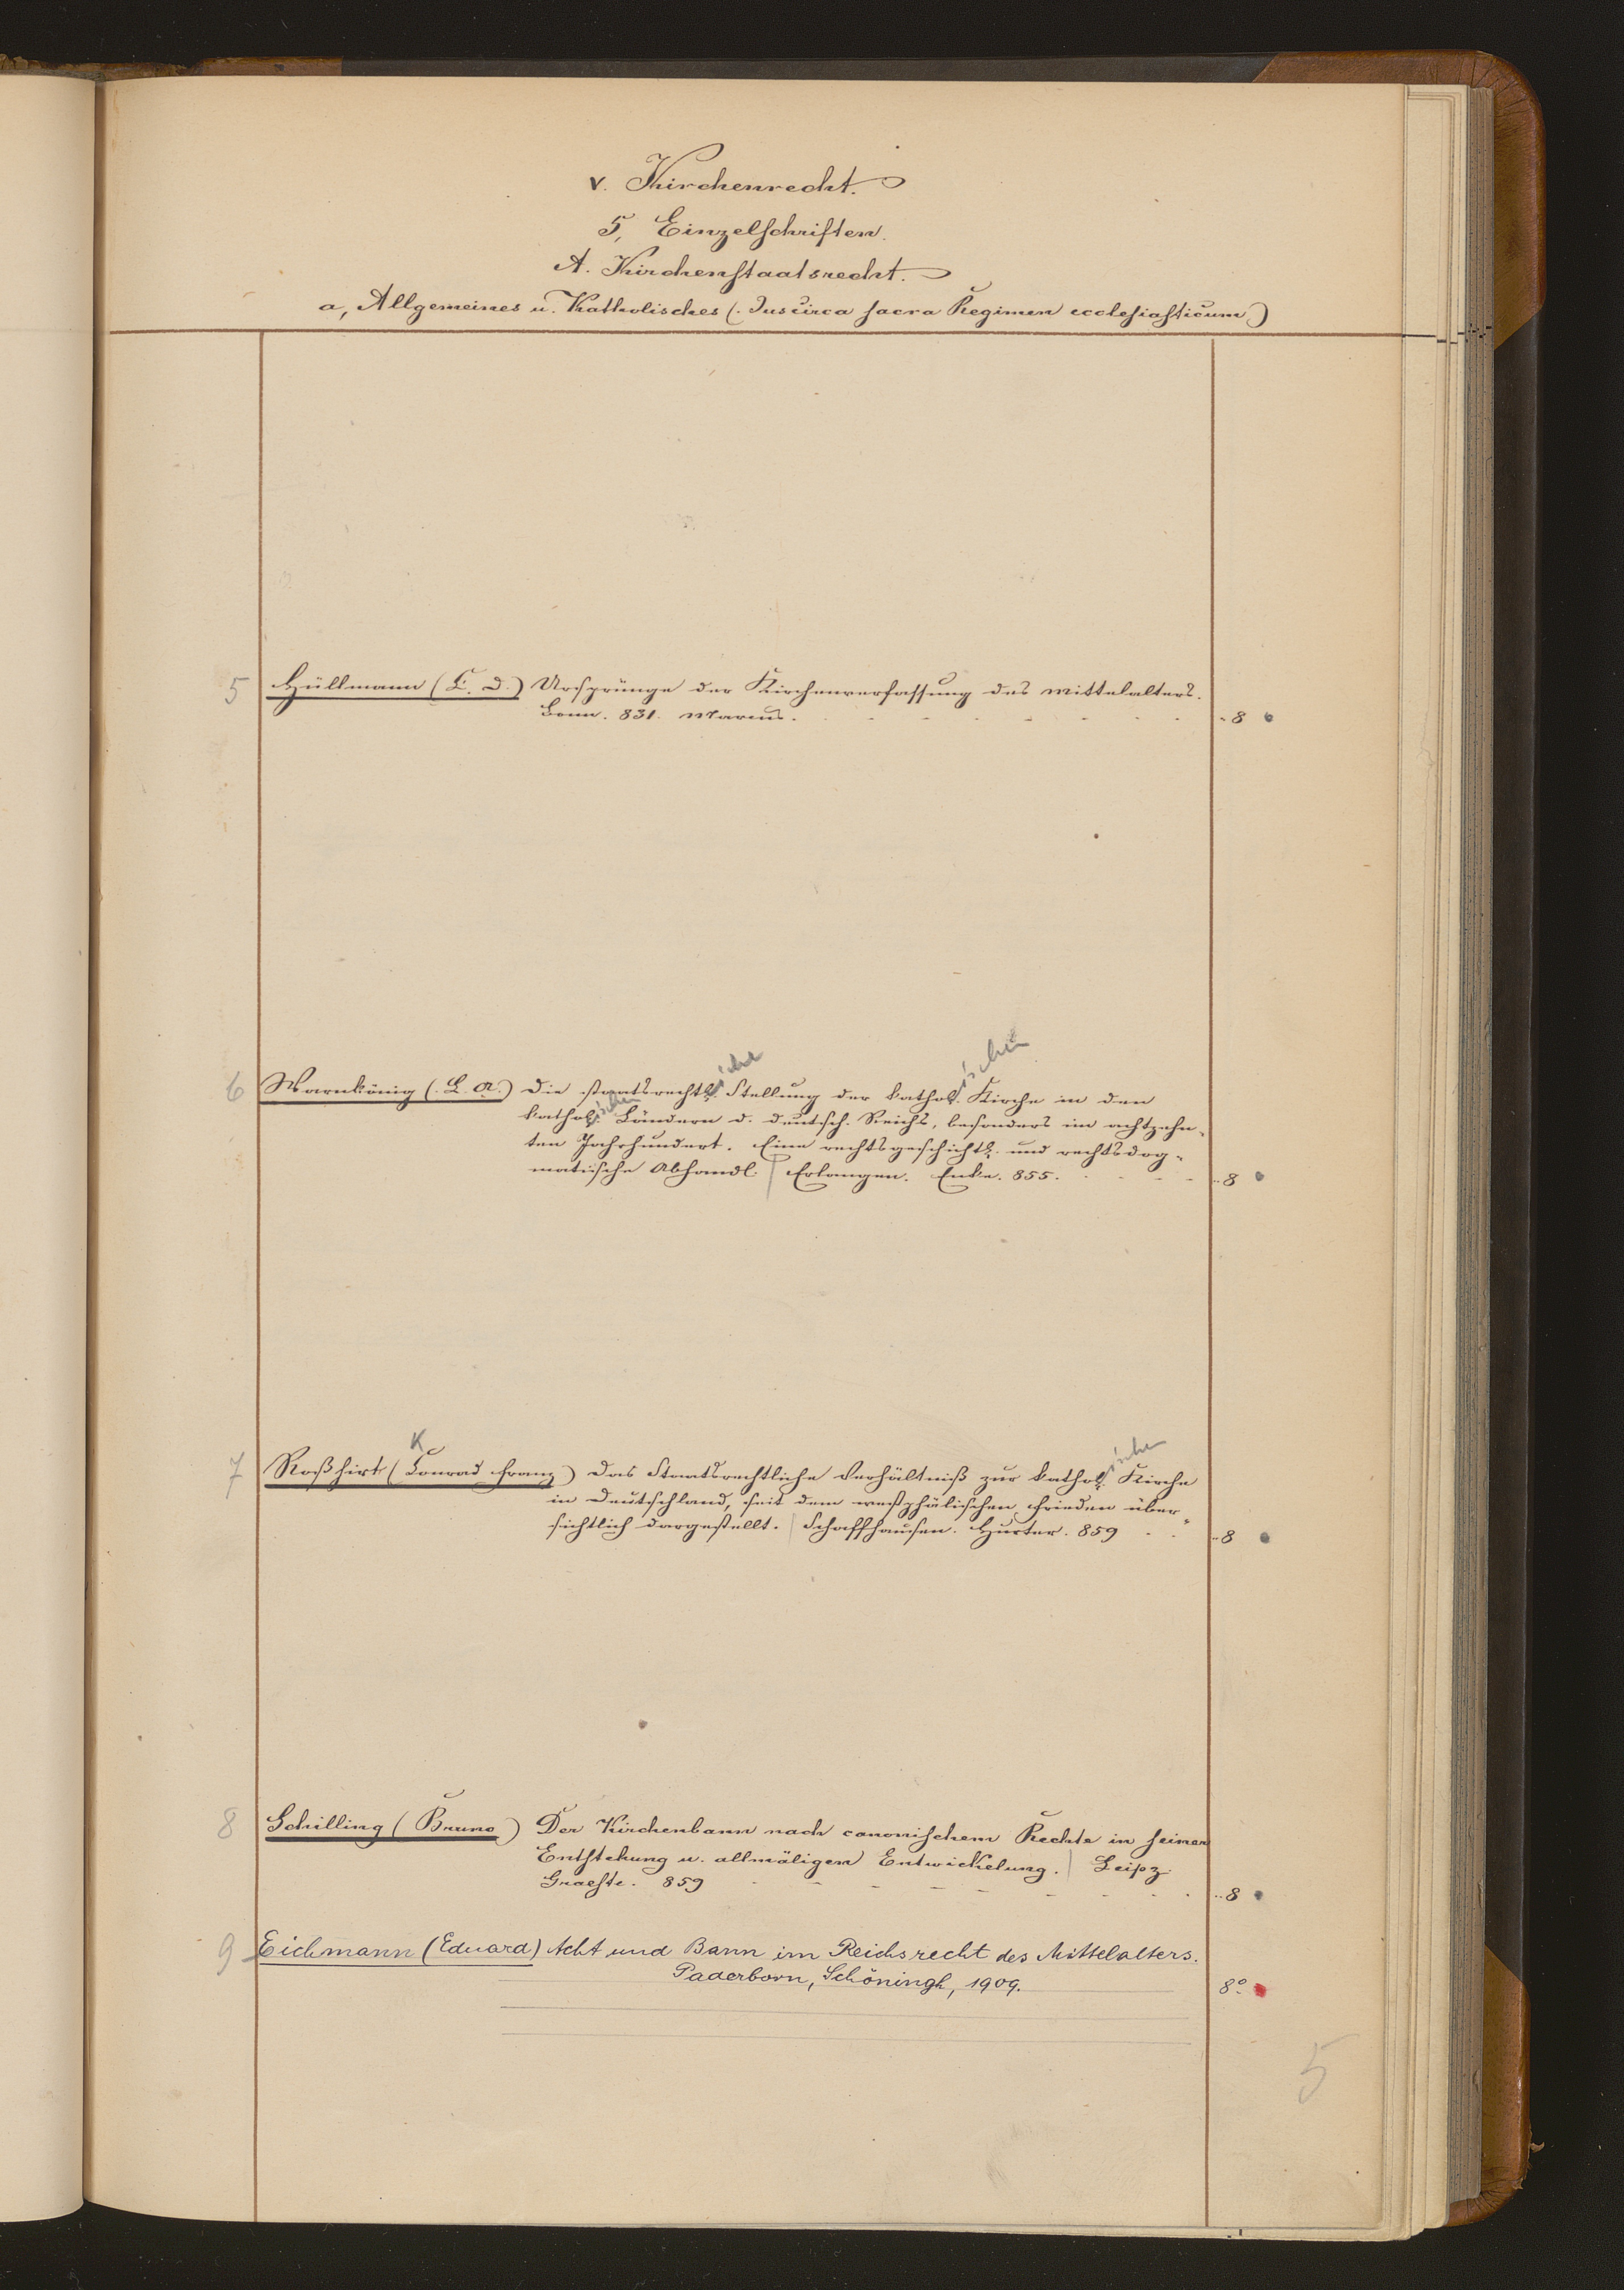 V. Kirchenrecht.
5, Einzelschriften.
A. Kirchenstaatsrecht.
a, Allgemeines u. Katholisches (. Jus circa sacra Regimen ecclesiasticum)
5 Hüllmann (C. D.) Ursprünge der Kirchenverfassung des Mittelalters.
Bonn. 831. Marcus. 8
ische ischen
6 Warnkönig (. L. A.) Die staatsrechtl. Stellung der kathol. Kirche in den
kathol. ischen Ländern d. deutsch. Reichs, besonders im achtzehn-
ten Jahrhundert. Eine rechtsgeschichtl. und rechtsdog-
matische Abhandl. | Erlangen. Enke. 855. 8
K ischen
7 Roßhirt (Conrad Franz) Das Staatsrechtliche Verhältniß zur kathol. Kirche
in Deutschland, seit dem westphälischen Frieden über-
sichtlich dargestellt. | Schaffhausen. Hurter. 859 8
8 Schilling (Bruno) Der Kirchenbann nach canonischem Rechte in seiner
Entstehung u. allmäligen Entwickelung. | Leipz.
Graefe. 859 8
9 Eichmann (Eduard) Acht und Bann im Reichsrecht des Mittelalters.
Paderborn, Schöningh, 1909. 8°
5